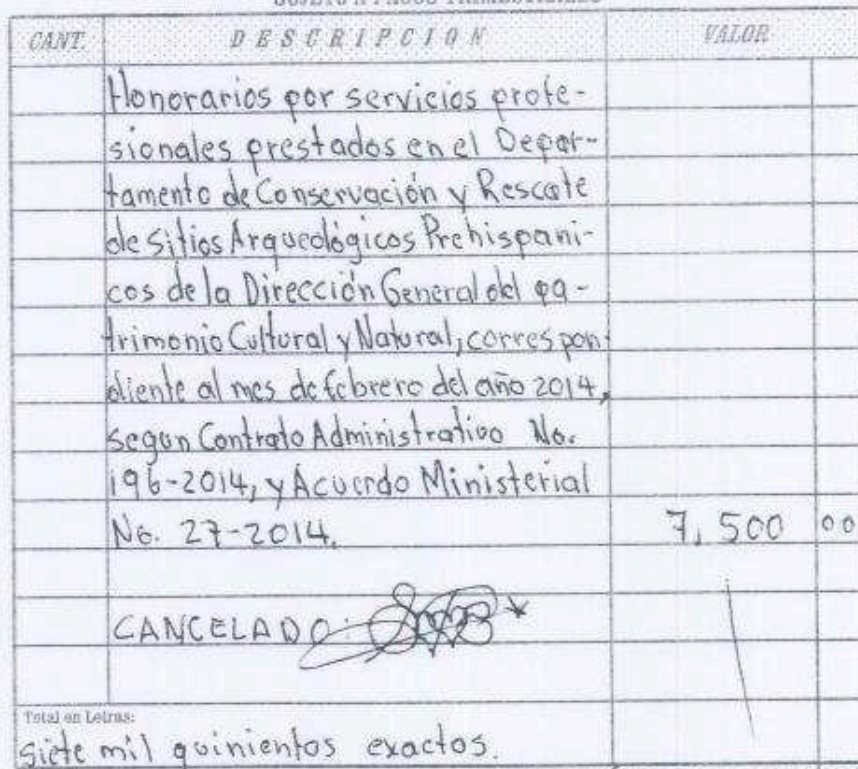 SUJETO A PAGOS TRIMESTRALES
CANT. DESCRIPCION VALOR
Honorarios por servicios profe-
sionales prestados en el Depar-
tamento de Conservación y Rescate
de Sitios Arqueológicos Prehispani-
cos de la Dirección General del pa-
trimonio Cultural y Natural, correspon-
diente al mes de febrero del año 2014,
segun Contrato Administrativo No.
196-2014, y Acuerdo Ministerial
No. 27-2014. 7,500 00
CANCELADO:
Total en Letras:
siete mil quinientos exactos.